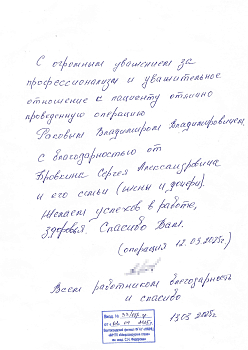 С огромным уважением за
профессионализм и уважительное
отношение к пациенту отлично
проведенную операцию
Раковым Владимиром Владимировичем,
с благодарностью от
Бровкина Сергея Александровича
и его семьи (жены и дочери).
Желаем успехов в работе,
здоровья. Спасибо Вам.
(операция 12.03.2025г.)
Всем работникам благодарность
и спасибо
13.03.2025г.
Вход №